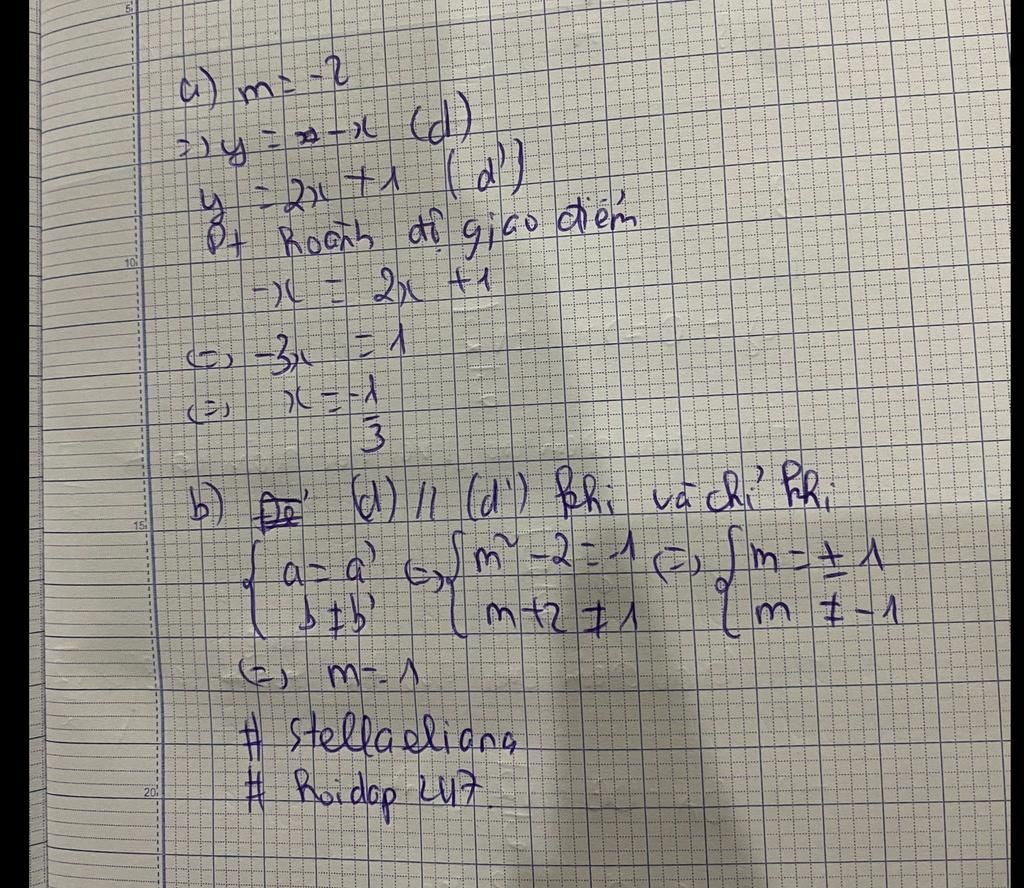 5
a) m = -2
=> y = -x (d)
y = 2x + 1 (d')
Pt hoành độ giao điểm
10
-x = 2x + 1
<=> -3x = 1
<=> x = -1/3
b) (d) // (d') khi và chỉ khi
15
{ a = a' <=> { m² - 2 = -1 <=> { m = ± 1
b ≠ b' m + 2 ≠ 1 m ≠ -1
<=> m = 1
# stellaeliana
# hoidap 247
20